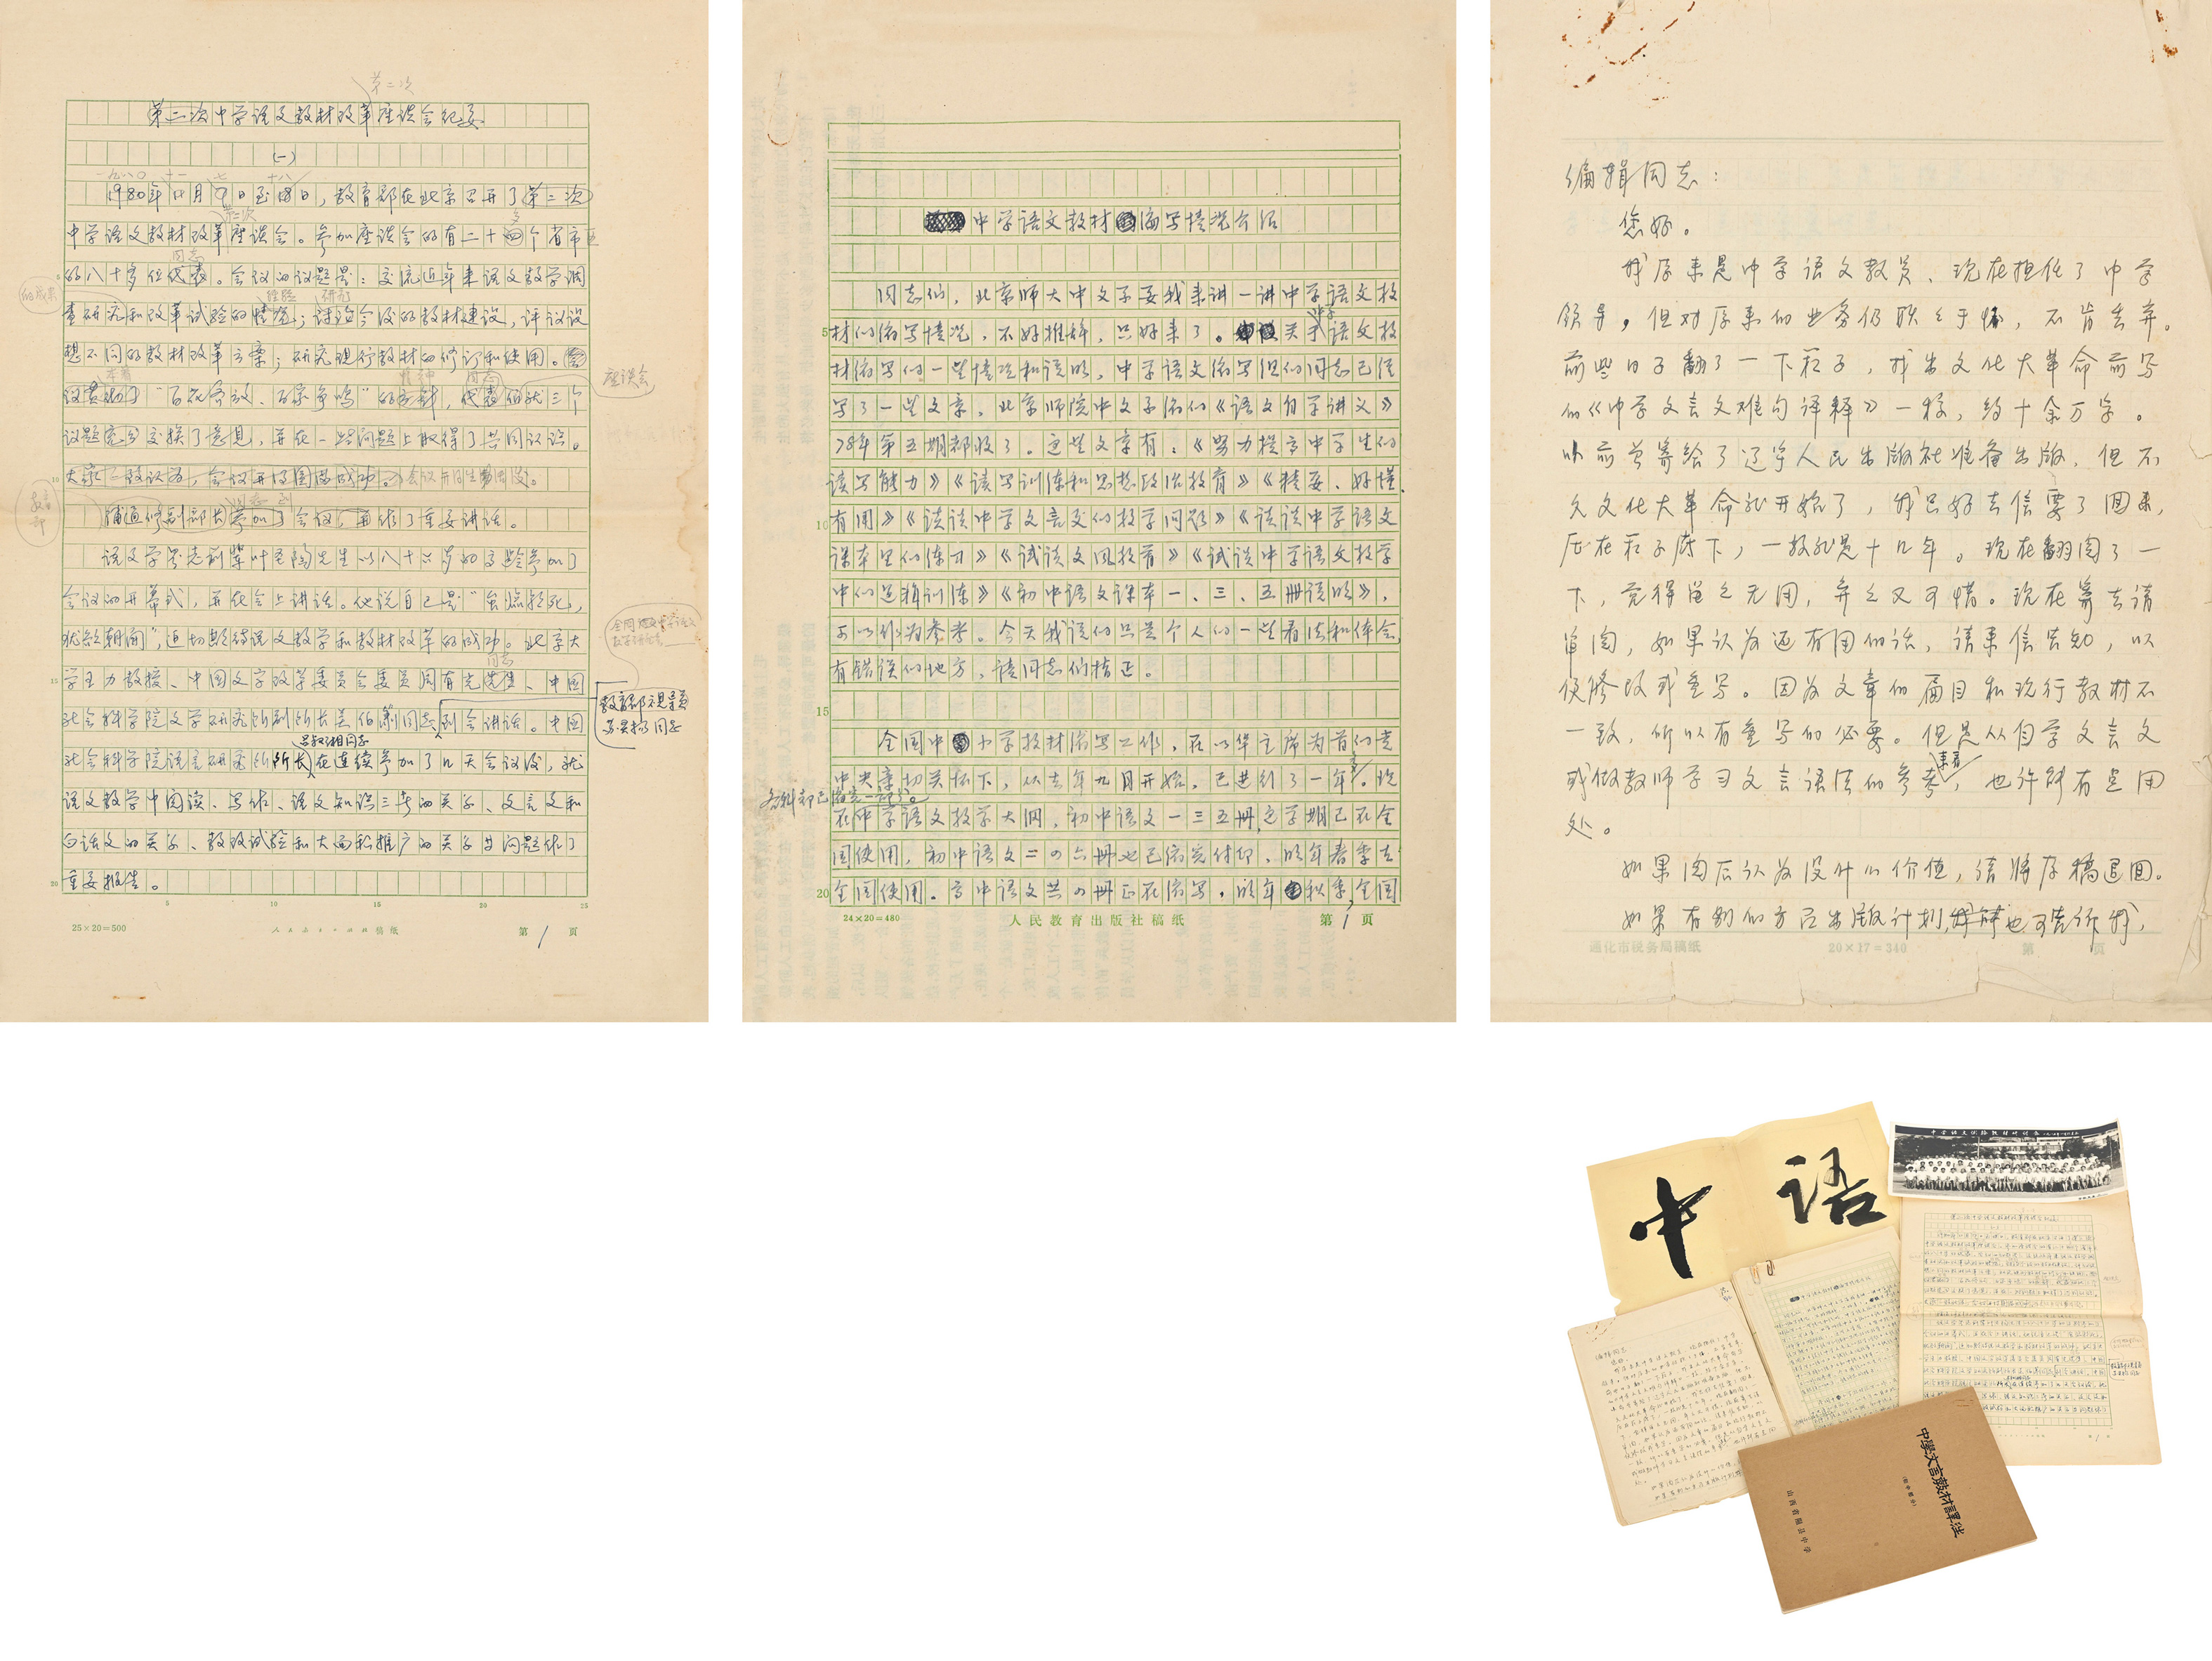 第二次
第二次中学语文教材改革座谈会纪要
(一)
一九八〇 十一 七 十八
1980年11月7日至18日,教育部在北京召开了第二次
第二次
中学语文教材改革座谈会。参加座谈会的有二十四个省市区
同志
的八十多位代表。会议的议题是:交流近年来语文教学调
的成果
经验 研究
查研究和改革试验的情况;讨论今后的教材建设,评议设
想不同的教材改革方案;研究现行教材的修订和使用。
座谈会
本着 精神 同志
议贯彻了“百花齐放、百家争鸣”的方针,代表们就三个
议题充分交换了意见,并在一些问题上取得了共同认识。
大家一致认为,会议开得圆满成功。会议开得生动活泼。
教育部
浦通修副部长参加了会议,并作了重要讲话。
语文学界老前辈叶圣陶先生以八十六岁的高龄参加了
会议的开幕式,并在会上讲话。他说自己是“虽临颓死,
犹欲朝闻”,迫切期待语文教学和教材改革的成功。北京大
同志
学王力教授、中国文字改革委员会委员周有光先生、中国
教育部视导员
苏灵扬同志
社会科学院文学研究所副所长吴伯箫同志到会讲话。中国
吕叔湘同志
社会科学院语言研究所所长在连续参加了几天会议后,就
语文教学中阅读、写作、语文知识三者的关系、文言文和
白话文的关系、教改试验和大面积推广的关系等问题作了
重要报告。
5 10 15 20 25
25×20=500
稿纸
第1页
中学语文教材编写情况介绍
同志们,北京师大中文系要我来讲一讲中学语文教
材的编写情况,不好推辞,只好来了。关于语文教
中学
材编写的一些情况和说明,中学语文编写组的同志已经
写了一些文章,北京师院中文系编的《语文自学讲义》
78年第五期都收了。这些文章有:《努力提高中学生的
读写能力》《读写训练和思想政治教育》《精要、好懂、
有用》《谈谈中学文言文的教学问题》《谈谈中学语文
课本里的练习》《试谈文风教育》《试谈中学语文教学
中的逻辑训练》《初中语文课本一、三、五册说明》,
可以作为参考。今天我谈的只是个人的一些看法和体会,
有错误的地方,请同志们指正。
全国中小学教材编写工作,在以华主席为首的党
中央亲切关怀下,从去年九月开始,已进行了一年。现
各科都已编完一部分。
在中学语文教学大纲,初中语文一三五册,这学期已在全
国使用,初中语文二四六册也已编完付印,明年春季在
全国使用。高中语文共四册正在编写,明年秋季,全国
5
10
15
20
24×20=480
人民教育出版社稿纸
第1页
编辑同志:
您好。
我原来是中学语文教员、现在担任了中学
领导,但对原来的业务仍耿耿于怀,不肯丢弃。
前些日子翻了一下箱子,找出文化大革命前写
的《中学文言文难句译释》一稿,约十余万字。
以前曾寄给了辽宁人民出版社准备出版,但不
久文化大革命就开始了,我只好去信要了回来,
压在箱子底下,一放就是十几年。现在翻阅了一
下,觉得留之无用,弃之又可惜。现在寄去请
审阅,如果认为还有用的话,请来信告知,以
便修改或重写。因为文章的篇目和现行教材不
一致,所以有重写的必要。但是从自学文言文
或做教师学习文言语法的参考来看,也许能有些用
处。
如果阅后认为没什么价值,请将原稿退回。
如果有别的方面出版计划,我能也可告诉我,
通化市税务局稿纸
20×17=340
第 页
中 语
中學文言教材譯注